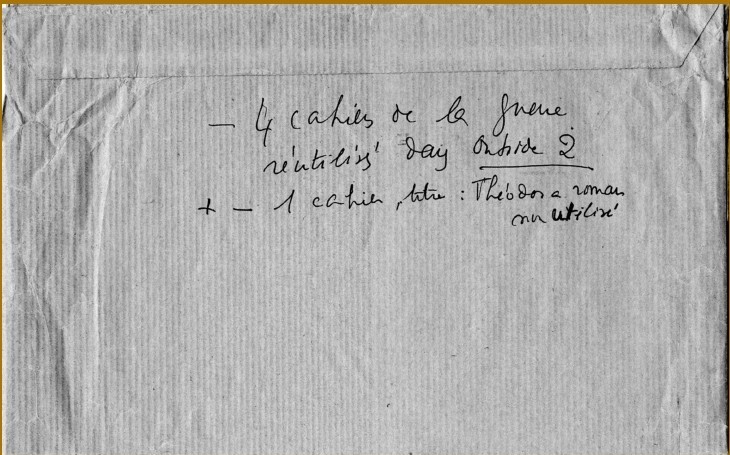 — 4 cahiers de la guerre
réutilisé dans Outside 2
+ — 1 cahier, titre : Théodora roman
non utilisé